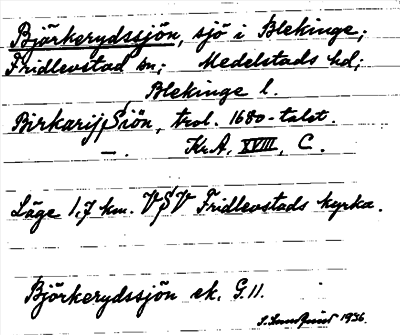 Björkerydssjön, sjö i Blekinge;
Fridlevstad sn; Medelstads hd;
Blekinge l.
Birkarijs Siön, trol. 1680-talet.
— . Kr.A. XVIII, C.
Läge 1,7 km. VSV Fridlevstads kyrka.
Björkerydssjön ek. G.11.
S. Sundquist 1936.